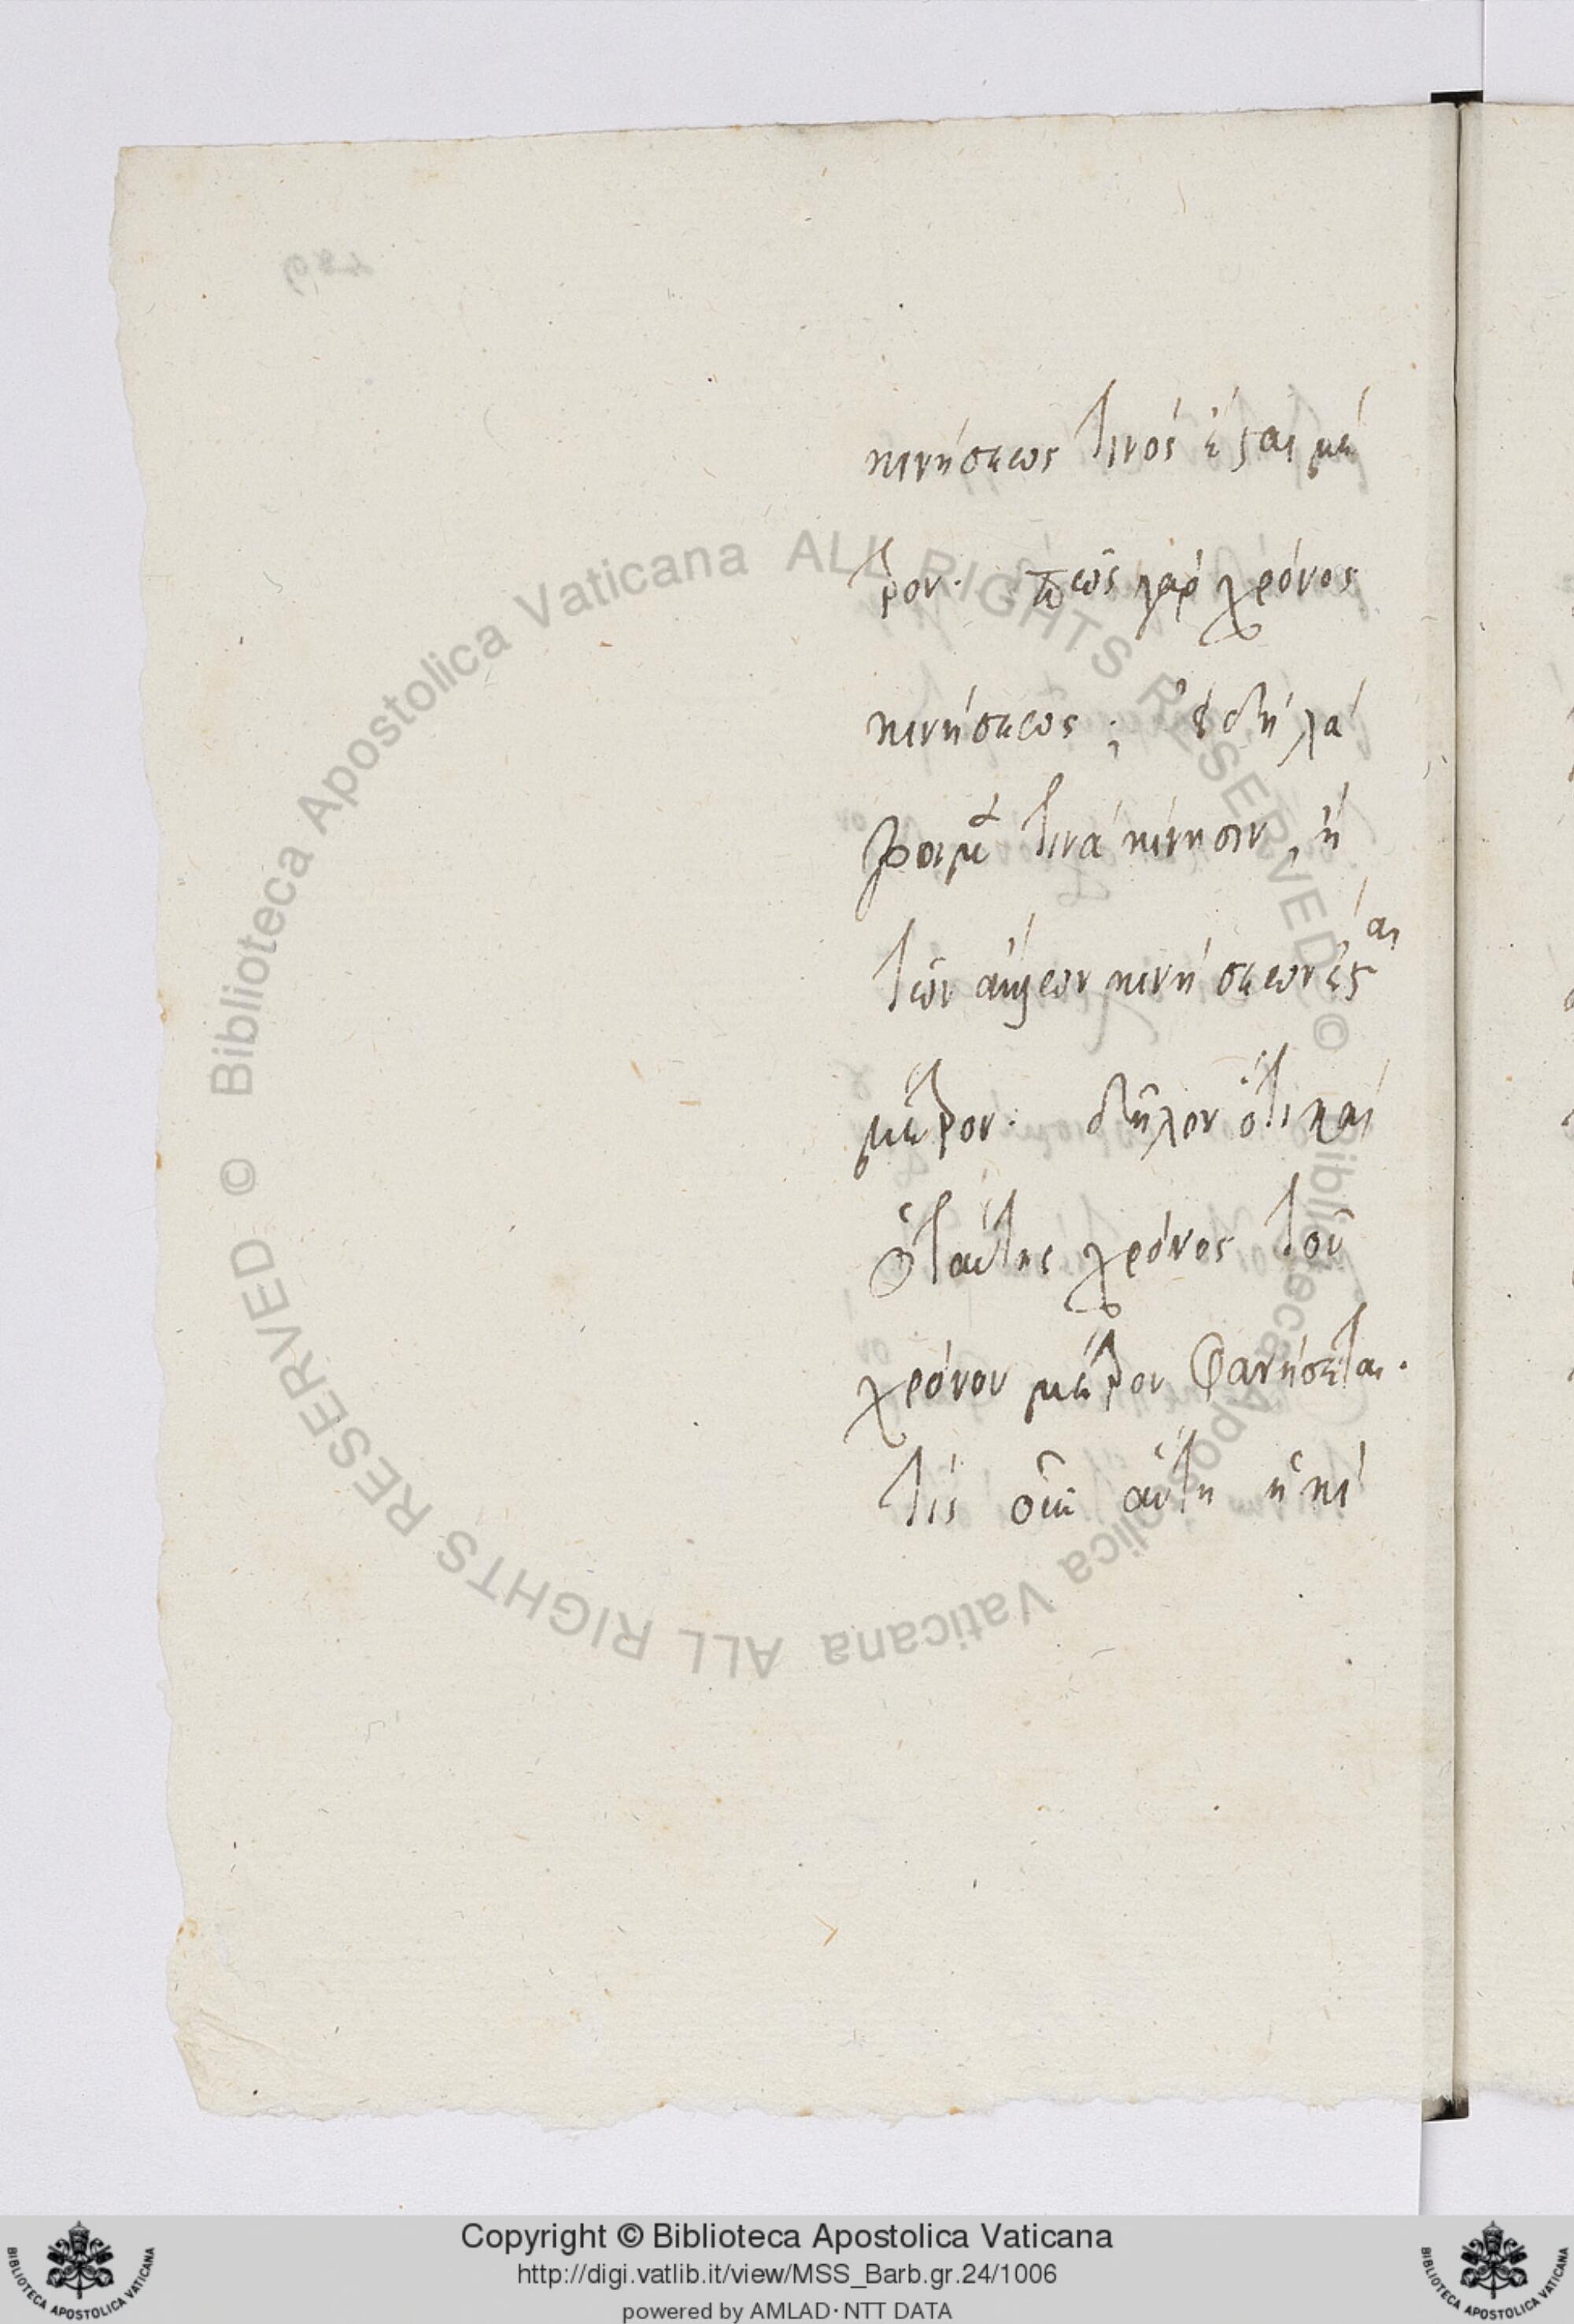 κινήσεως τινός ἔσται μέ
τρον. πῶς γὰρ χρόνος
κινήσεως; εἰ δὴ λά
βοιμεν τινὰ κίνησιν, ἣ
τῶν ἄλλων κινήσεων ἔσται
μέτρον. δῆλον ὅτι καὶ
ὁ ταύτης χρόνος τοῦ
χρόνου μέτρον φανήσεται.
τίς οὖν αὕτη ἡ κί
Biblioteca Apostolica Vaticana ALL RIGHTS RESERVED ©
Biblioteca Apostolica Vaticana ALL RIGHTS RESERVED ©
Copyright © Biblioteca Apostolica Vaticana
http://digi.vatlib.it/view/MSS_Barb.gr.24/1006
powered by AMLAD · NTT DATA
BIBLIOTECA APOSTOLICA VATICANA
BIBLIOTECA APOSTOLICA VATICANA